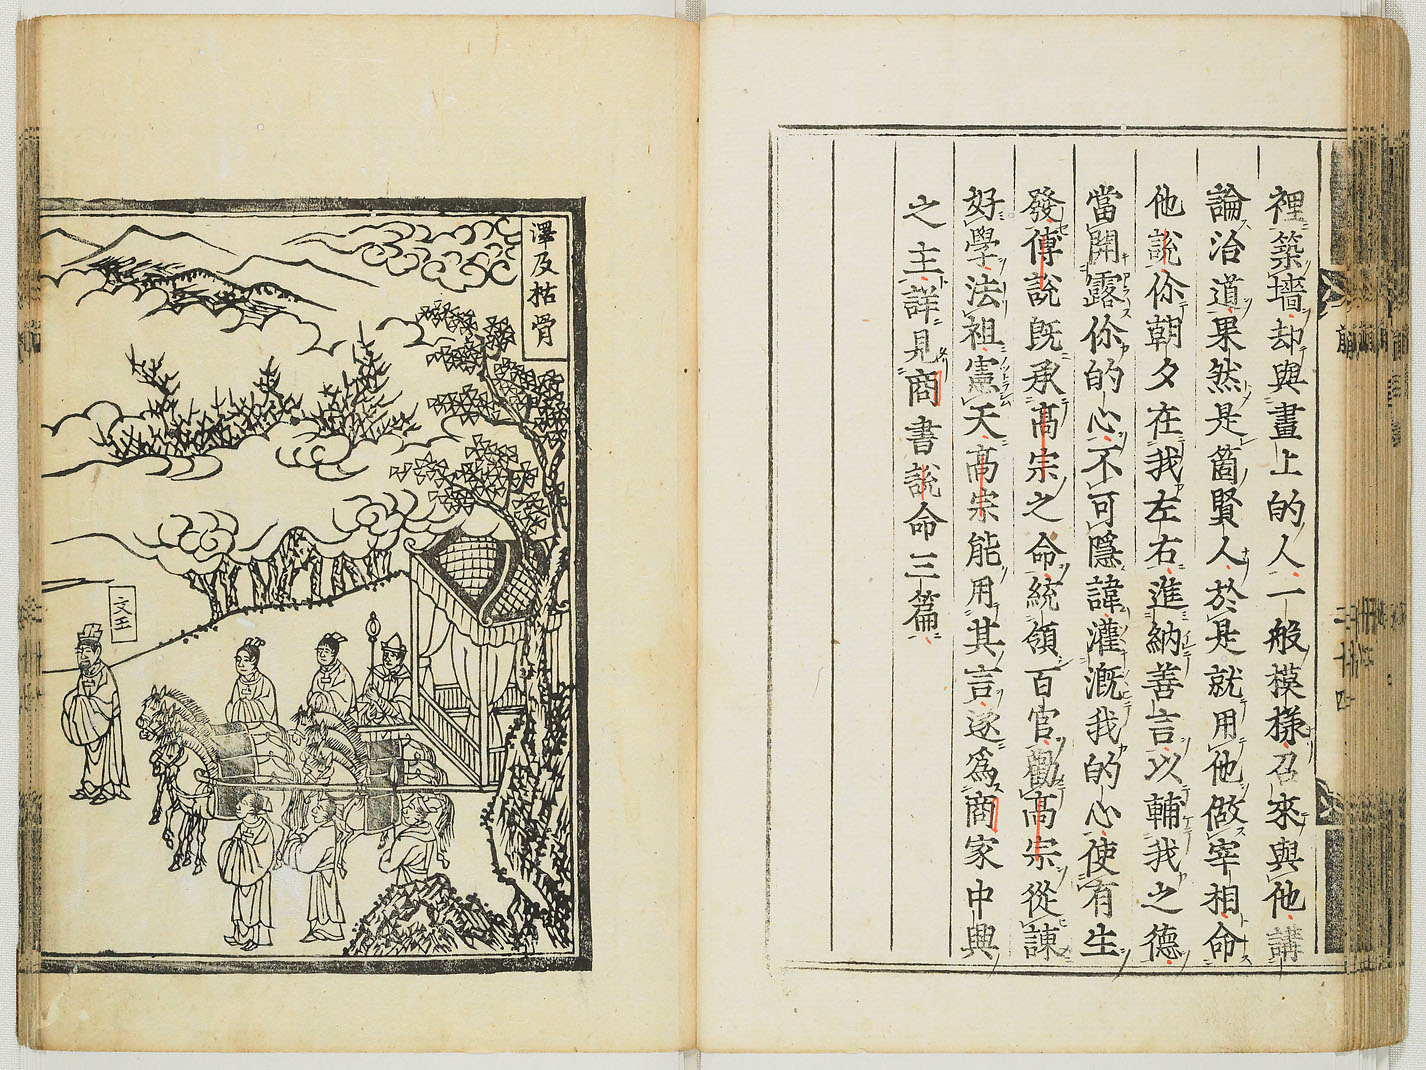 裡築墻却與畫上的人一般模樣召來與他講
論治道果然是箇賢人於是就用他做宰相命
他說你朝夕在我左右進納善言以輔我之德
當開露你的心不可隱諱灌漑我的心使有生
發傅說既承高宗之命統領百官勸高宗從諫
好學法祖憲天高宗能用其言遂爲商家中興
之主詳見商書說命三篇
澤及枯骨
文王